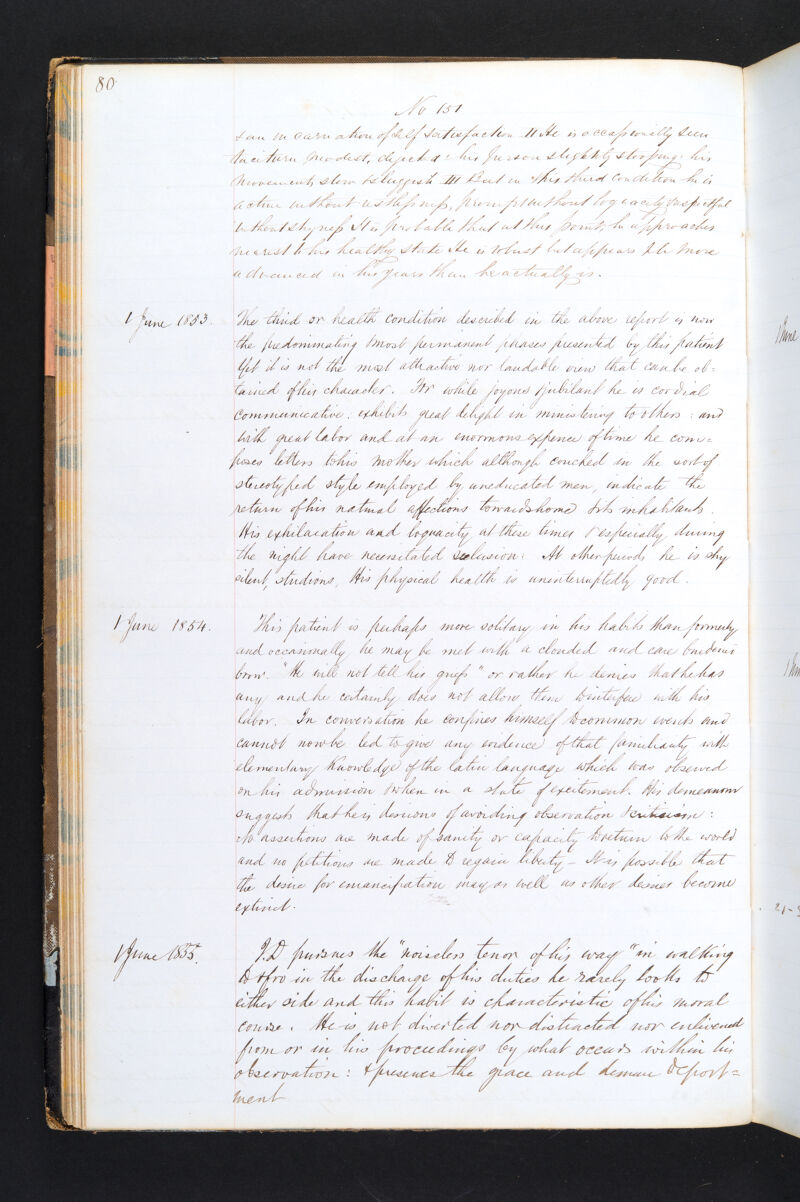 80
No 151
& an incarnation of self satisfaction II He is occasionally seen
taciturn modest, dejected: his person slightly stooping: his
movements slow & sluggish III But in this third condition he is
active without restlessness, prompt without loquacity respectful
without shyness It is probable that at this point he approaches
nearest to his healthy state He is robust but appears to be more
advanced in his years than he actually is.
1 June 1853. The third or health condition described in the above report is now
the predominating & most permanent phases presented by this patient
Yet it is not the most attractive nor laudable view that can be ob-
tained of his character. For while joyous & jubilant he is cordial
communicative: exhibits great delight in ministering to others: and
with great labor and at an enormous expence of time he com-
poses letters to his mother which although couched in the sort of
stereotyped style employed by uneducated men, indicate the
return of his natural affections towards home & its inhabitants.
His exhilaration and loquacity at these times & especially during
the night have necessitated seclusion: At other periods he is shy
silent, studious, His physical health is uninterruptedly good.
1 June 1854. This patient is perhaps more solitary in his habits than formerly
and occasionally he may be met with a clouded and care burdened
brow. "He will not tell his griefs" or rather he denies that he has
any and he certainly does not allow them to interfere with his
labor. In conversation he confines himself to common events and
cannot now be led to give any evidence of that familiarity with
elementary knowledge of the latin language which was observed
on his admission & when in a state of excitement. His demeanour
suggests that he is desirous of avoiding observation & criticism:
No assertions are made of sanity or capacity to return to the world
and no petitions are made to regain liberty – It is possible that
the desire for emancipation may as well as other desires become
extinct.
1 June 1855. J.D pursues the "noiseless tenor of his way" in walking
to & fro in the discharge of his duties he rarely looks to
either side and this habit is characteristic of his moral
course. He is not diverted nor distracted nor enlivened
from or in his proceedings by what occurs within his
observation: & preserves the grace and demure deport=
ment
1 June